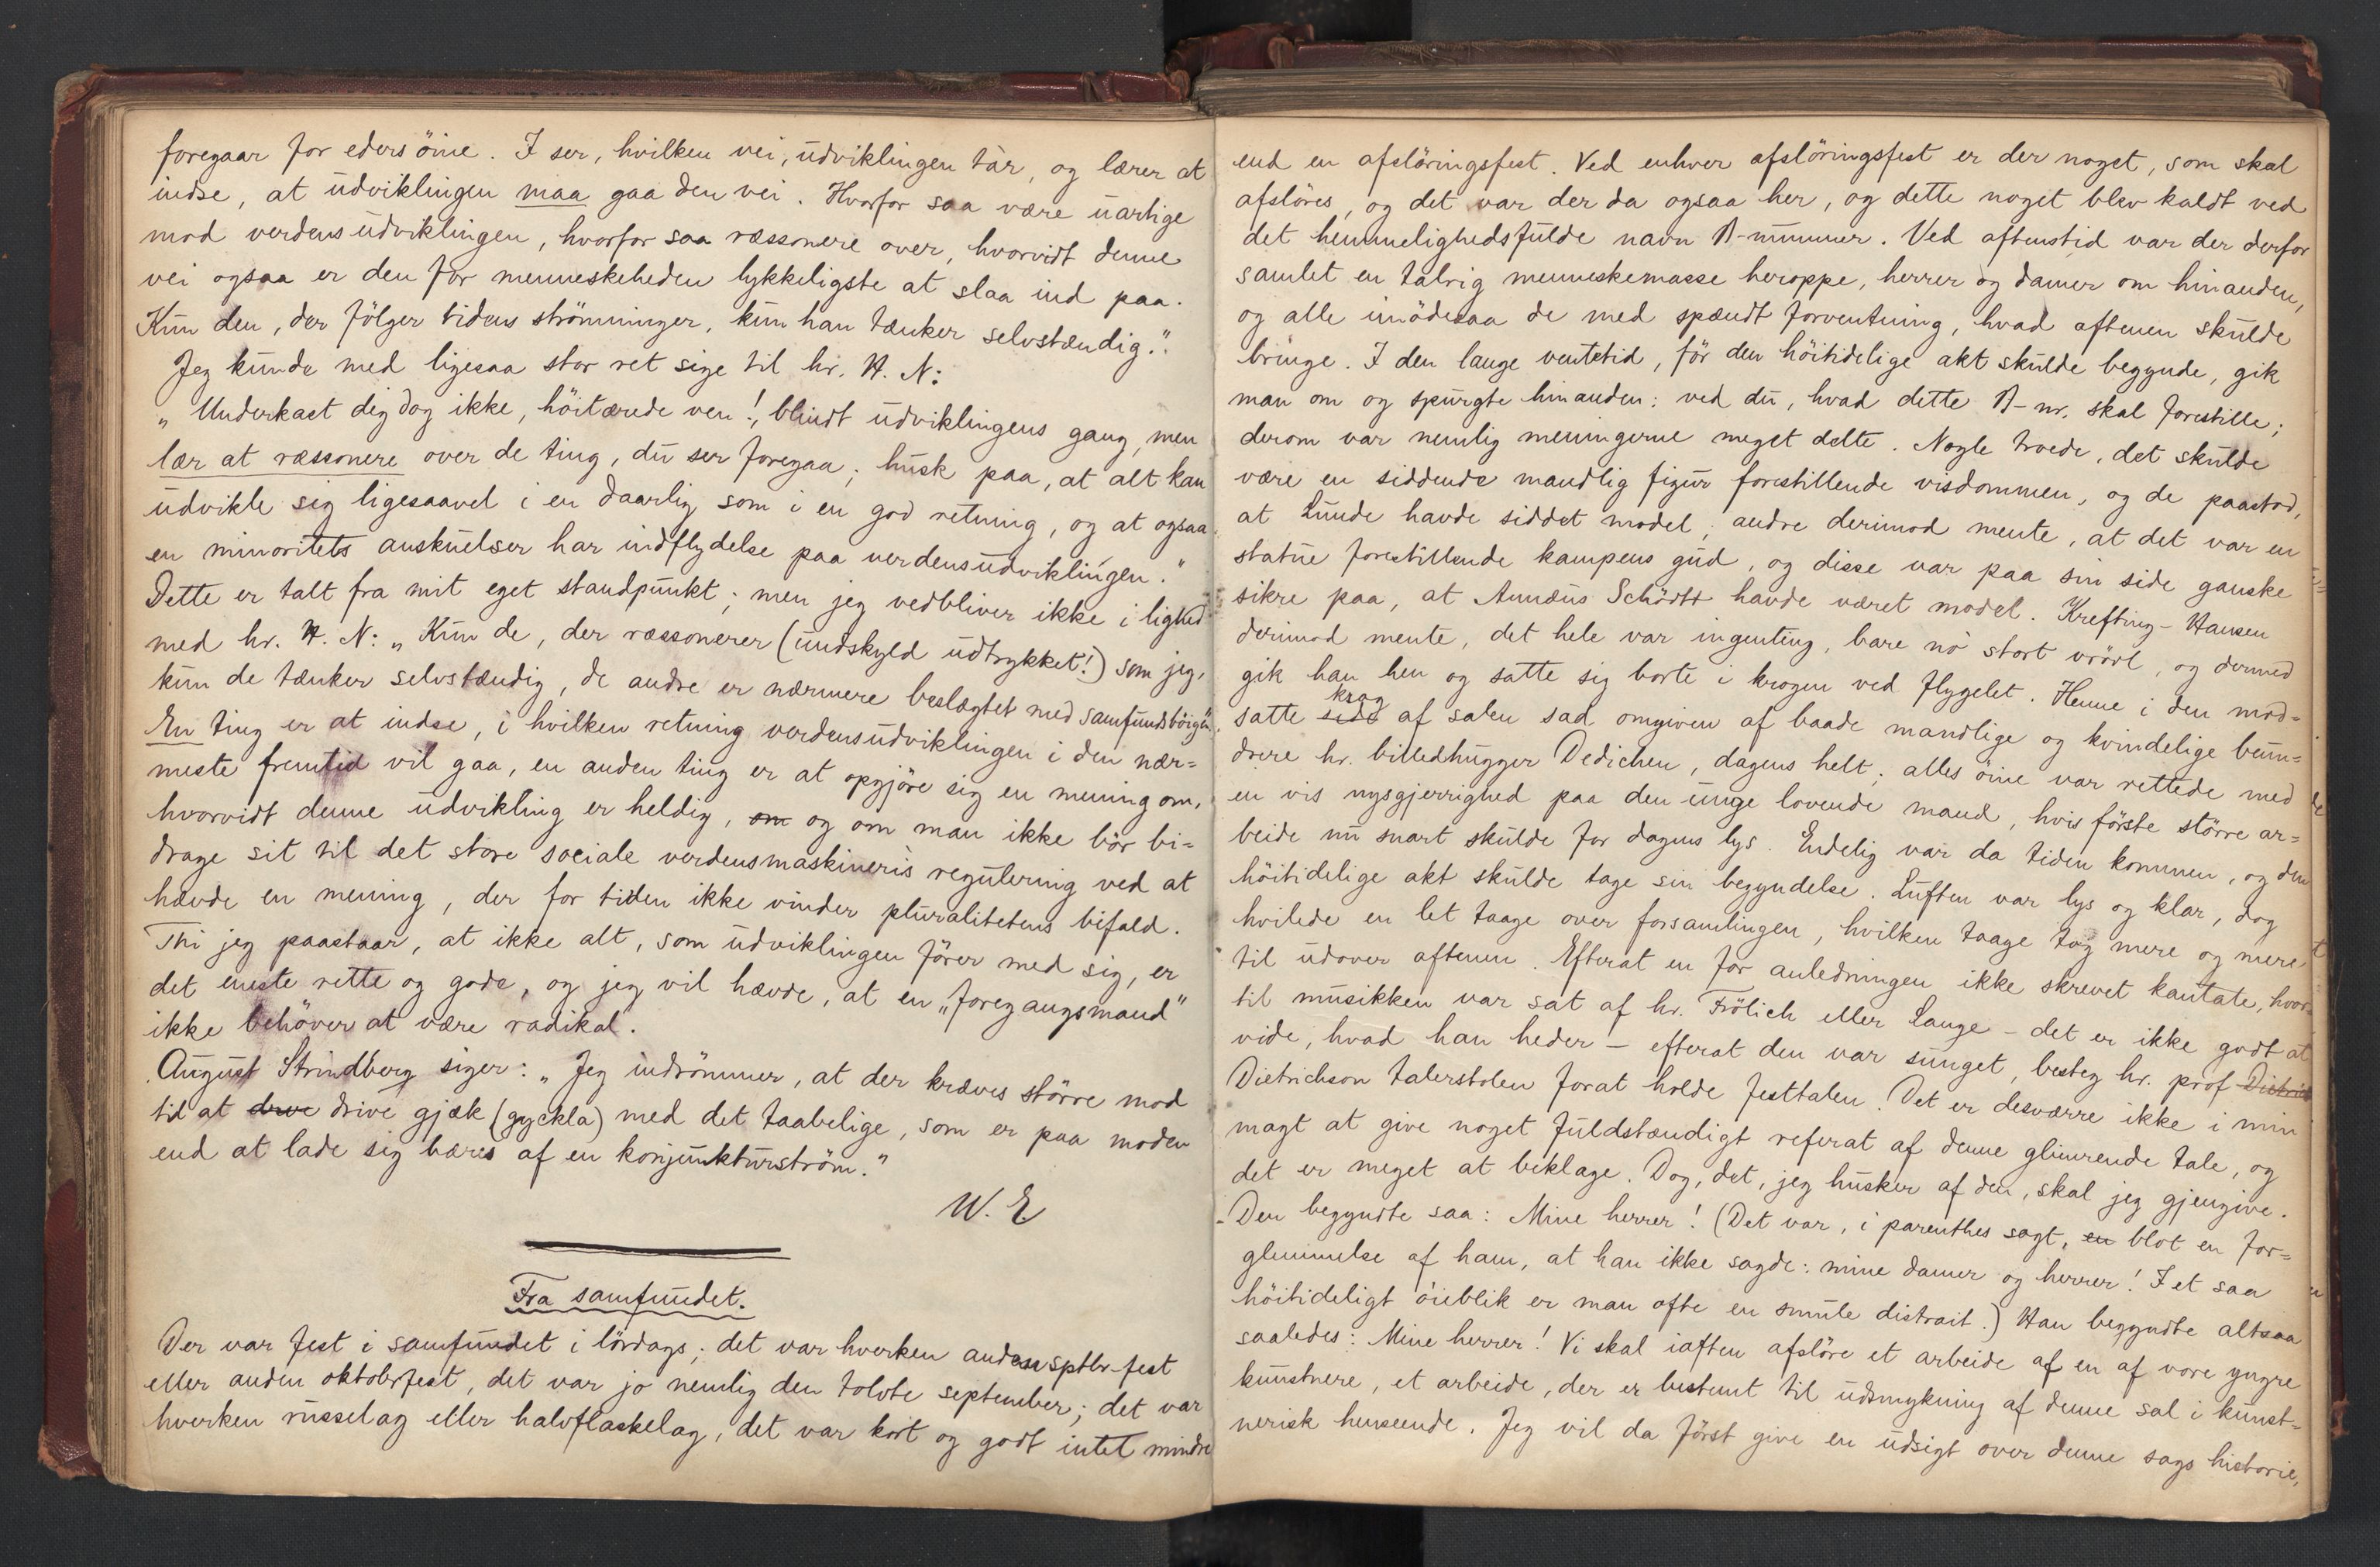 foregaar for eders öine. I ser, hvilken vei, udviklingen tár, og lærer at
indse, at udviklingen maa gaa den vei. Hvorfor saa være uartige
mod verdensudviklingen, hvorfor saa ræssonere over, hvorvidt denne
vei ogsaa er den for menneskeheden lykkeligste at slaa ind paa.
Kun den, der fölger tidens strömninger, kun han tænker selvstændig.".
Jeg kunde med ligesaa stor ret sige til hr. H. N:
„Underkast dig dog ikke, höitærede ven!, blindt udviklingens gang, men
lær at ræssonere over de ting, du ser foregaa; husk paa, at alt kan
udvikle sig ligesaavel i en daarlig som i en god retning, og at ogsaa
en minoritets anskuelser har indflydelse paa verdensudviklingen."
Dette er talt fra mit eget standpunkt; men jeg vedbliver ikke i lighed
med hr. H. N: „Kun de, der ræssonerer (undskyld udtrykket!) som jeg,
kun de tænker selvstændig, de andre er nærmere beslægtet med samfundsböigen".
En ting er at indse, i hvilken retning verdensudviklingen i den nær=
meste fremtid vil gaa, en anden ting er at opgjöre sig en mening om,
hvorvidt denne udvikling er heldig, om og om man ikke bör bi=
drage sit til det store sociale verdensmaskineris regulering ved at
hævde en mening, der for tiden ikke vinder pluralitetens bifald.
Thi jeg paastaar, at ikke alt, som udviklingen förer med sig, er
det eneste rette og gode, og jeg vil hævde, at en „foregangsmand"
ikke behöver at være radikal.
August Strindberg siger: „Jeg indrömmer, at der kræves större mod
til at drive drive gjæk (gyckla) med det taabelige, som er paa moden
end at lade sig bæres af en konjunkturström."
W. E.
Fra samfundet.
Der var fest i samfundet i lördags; det var hverken anden sptbr-fest
eller anden oktoberfest, det var jo nemlig den tolvte september; det var
hverken russelag eller halvflaskelag, det var kort og godt intet mindre
end en afslöringsfest. Ved enhver afslöringsfest er der noget, som skal
afslöres, og det var der da ogsaa her, og dette noget blev kaldt ved
det hemmelighedsfulde navn B-nummer. Ved aftenstid var der derfor
samlet en talrig menneskemasse heroppe, herrer og damer om hinanden,
og alle imödesaa de med spændt forventning, hvad aftenen skulde
bringe. I den lange ventetid, för den höitidelige akt skulde begynde, gik
man om og spurgte hinanden: ved du, hvad dette B-nr. skal forestille;
derom var nemlig meningerne meget delte. Nogle troede, det skulde
være en siddende mandlig figur forestillende visdommen, og de paastod,
at Lunde havde siddet model; andre derimod mente, at det var en
statue forestillende kampens gud, og disse var paa sin side ganske
sikre paa, at Annæus Schödtt havde været model. Krefting-Hansen
derimod mente, det hele var ingenting, bare no stort vrövl, og dermed
gik han hen og satte sig borte i krogen ved flygelet. Henne i den mod=
krog
satte side af salen sad omgiven af baade mandlige og kvindelige beun=
drere hr. billedhugger Dedichen, dagens helt; alles öine var rettede med
en vis nysgjerrighed paa den unge lovende mand, hvis förste större ar=
beide nu snart skulde for dagens lys. Endelig var da tiden kommen, og den
höitidelige akt skulde tage sin begyndelse. Luften var lys og klar, dog
hvilede en let taage over forsamlingen, hvilken taage tog mere og mere
til udover aftenen. Efterat en for anledningen ikke skrevet kantate, hvor
til musikken var sat af hr. Frölich eller Lange – det er ikke godt at
vide, hvad han heder – efterat den var sunget, besteg hr. prof Dietrich
Dietrichson talerstolen forat holde festtalen. Det er desværre ikke i min
magt at give noget fuldstændigt referat af denne glimrende tale, og
det er meget at beklage. Dog, det, jeg husker af den, skal jeg gjengive.
Den begyndte saa: Mine herrer! (Det var, i parenthes sagt, en blot en for=
glemmelse af ham, at han ikke sagde: mine damer og herrer! I et saa
höitideligt öieblik er man ofte en smule distrait.) Han begyndte altsaa
saaledes: Mine herrer! Vi skal iaften afslöre et arbeide af en af vore yngre
kunstnere, et arbeide, der er bestemt til udsmykning af denne sal i kunst=
nerisk henseende. Jeg vil da först give en udsigt over denne sags historie,